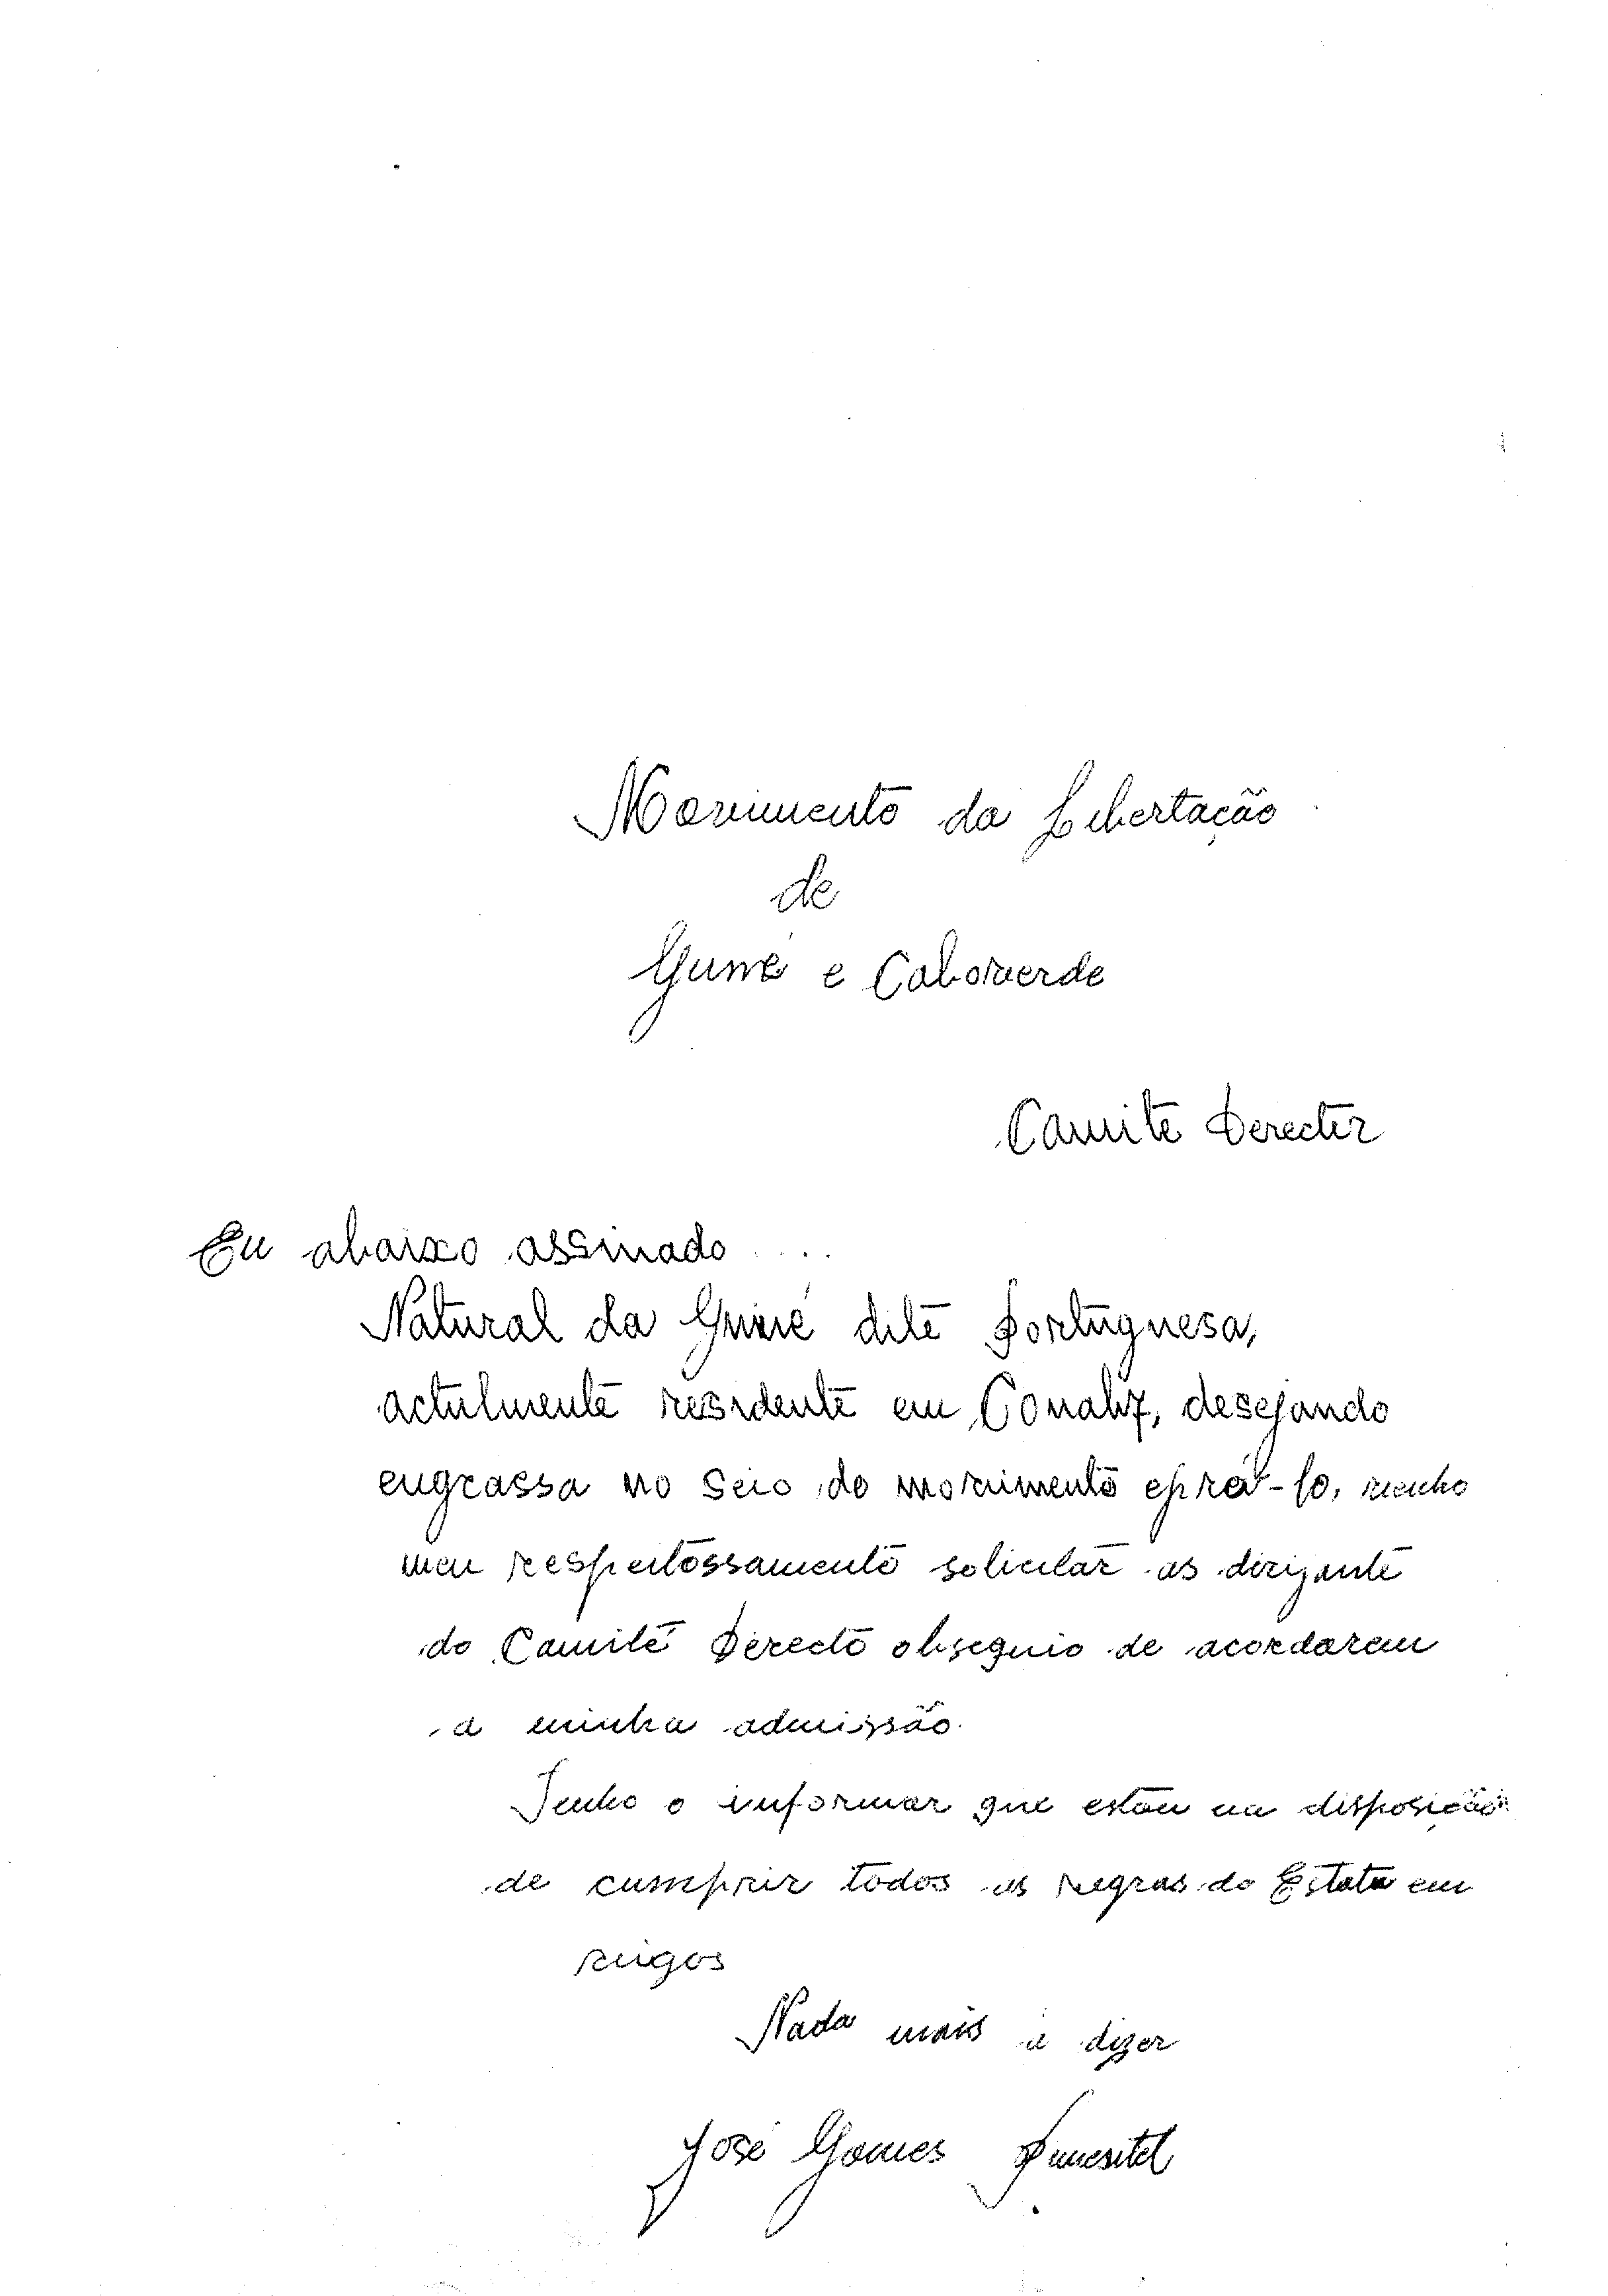 Movimento da Libertação
de
Guiné e Caboverde
Camite Derecter
Eu abaixo assinado ....
Natural da Guiné dite Portuguesa,
actulmente residente em Conakry, desejando
engrassa no Seio do movimento
meu respeitossamente solicitar as dirigante
do Camité Derecto obsequio de acordarem
a minha admissão.
Tenho o informar que estou na disposição
de cumprir todos as regras do Estato em
rigos
Nada mais a dizer
José Gomes